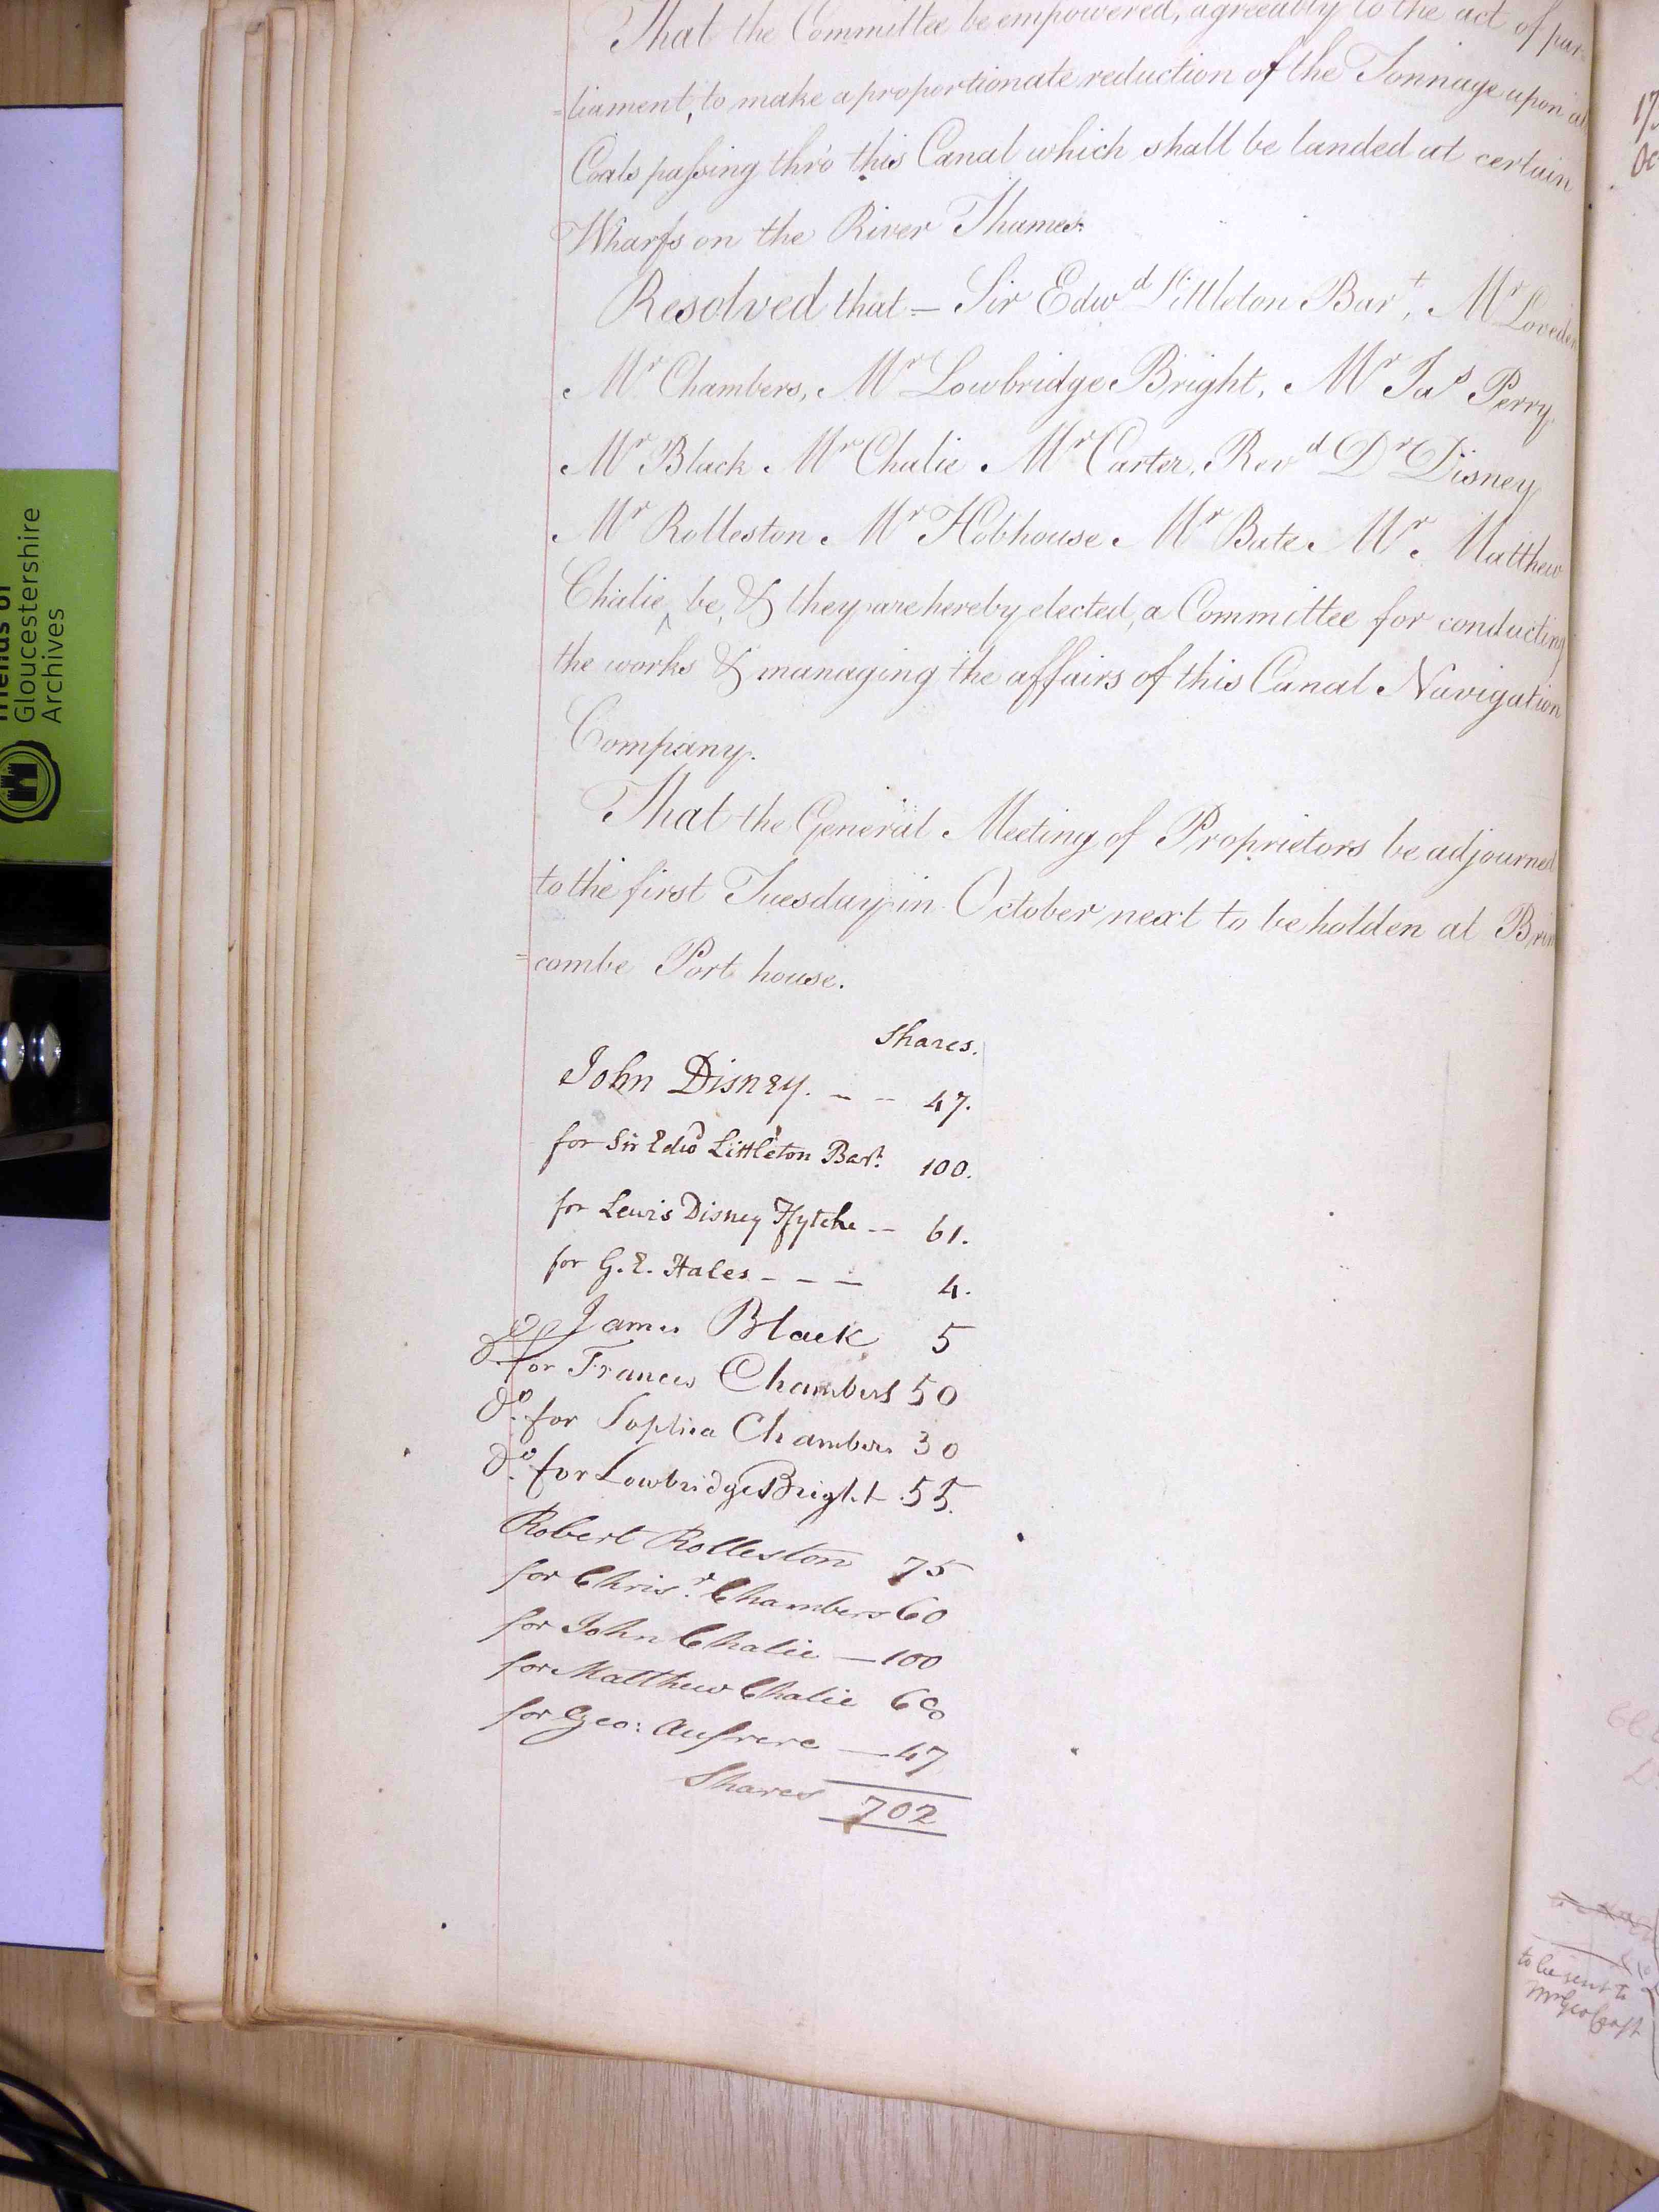 That the Committee be empowered, agreeably to the act of par-
=liament, to make a proportionate reduction of the Tonnage upon all
Coals passing thro' this Canal which shall be landed at certain
Wharfs on the River Thames.
Resolved that — Sir Edwd Littleton Bart, Mr Loveden
Mr Chambers, Mr Lowbridge Bright, Mr Jas Perry
Mr Black Mr Chalie Mr Carter, Revd Dr Disney
Mr Rolleston Mr Hobhouse Mr Bate Mr Matthew
Chalie, be, & they are hereby elected, a Committee for conducting
the works & managing the affairs of this Canal Navigation
Company.
That the General Meeting of Proprietors be adjourned
to the first Tuesday in October next to be holden at Brim
=combe Port house.
Shares.
John Disney. - - 47.
for Sir Edwd Littleton Bart. 100.
for Lewis Disney Ffytche -- 61.
for G. E. Hales - - - 4.
James Black 5
Do for Frances Chambers 50
Do. for Sophia Chambers 30
Do. for Lowbridge Bright 55.
Robert Rolleston 75
for Chrisr. Chambers 60
for John Chalie — 100
for Matthew Chalie 68
for Geo: Aufrere — 47
Shares 702
Friends of
Gloucestershire
Archives
to be sent to